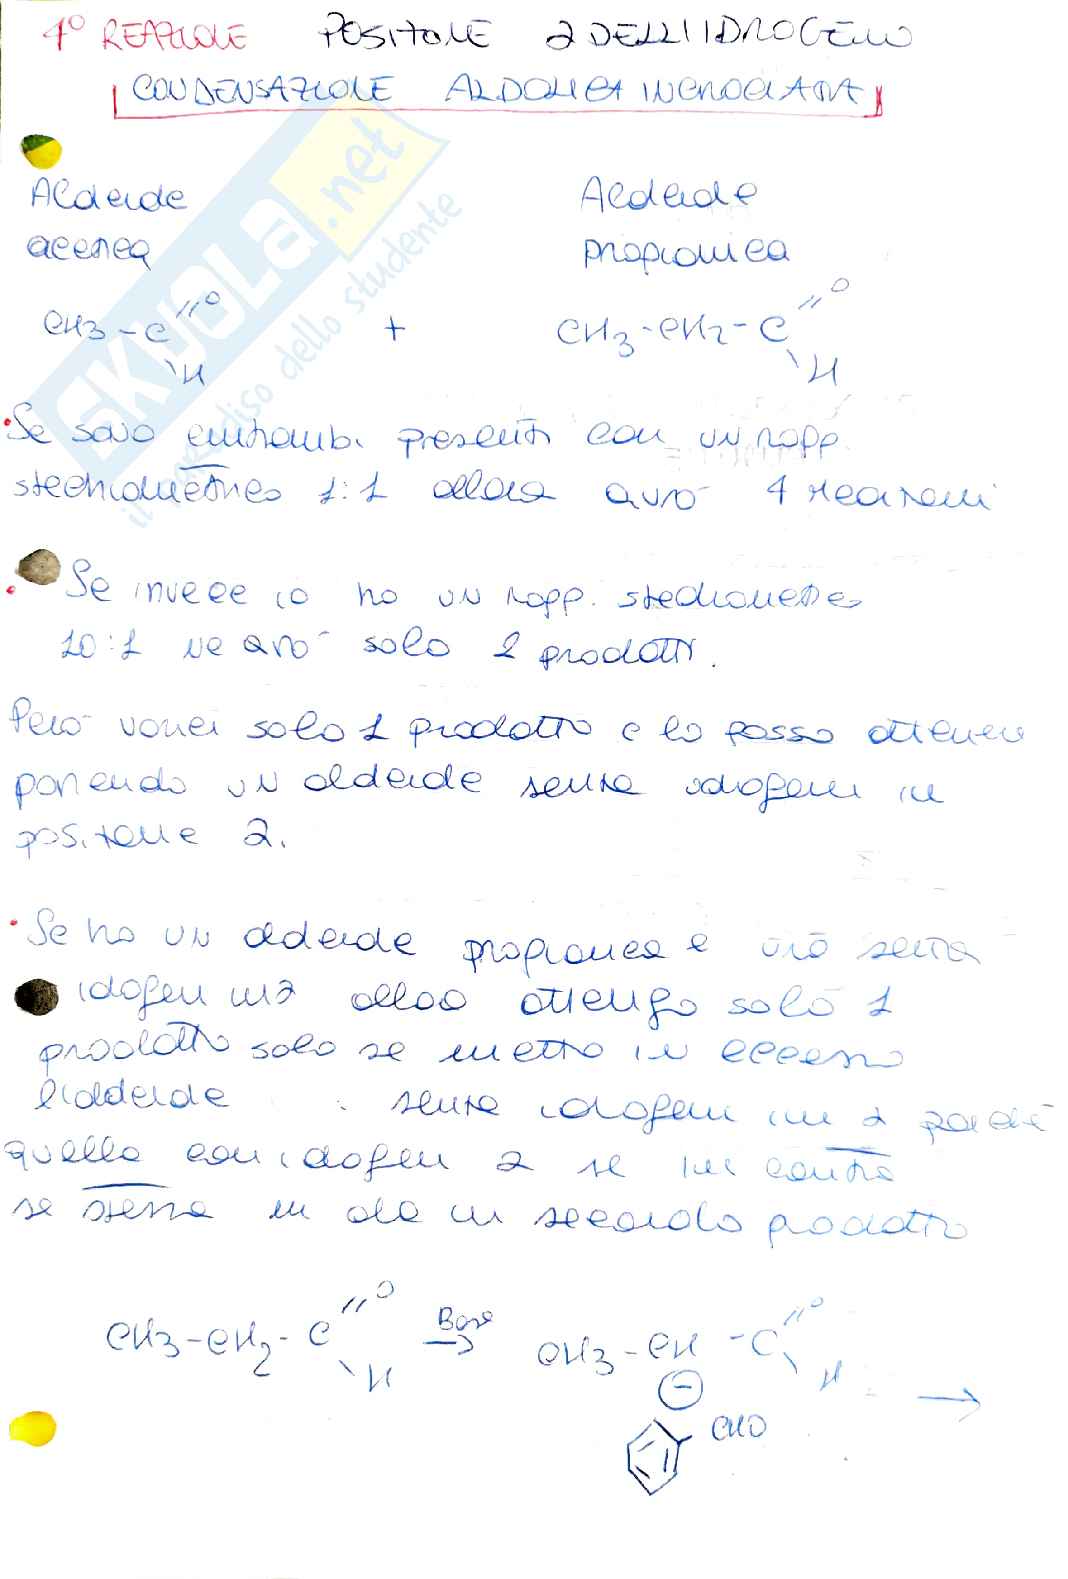 4° REAZIONE POSIZIONE 2 DELL'IDROGENO
CONDENSAZIONE ALDOLICA INCROCIATA
Aldeide Aldeide
acetica propionica
CH3-C=O H + CH3-CH2-C=O H
SKUOLA.net
il paradiso dello studente
• Se sono entrambi presenti con un rapp.
stechiometrico 1:1 allora avrò 4 reazioni
• Se invece io ho un rapp. stechiometrico
10:1 ne avrò solo 2 prodotti.
Però vorrei solo 1 prodotto e lo posso ottenere
ponendo un aldeide senza idrogeni in
posizione 2.
• Se ho un aldeide propionica e una senza
idrogeni in 2 allora ottengo solo 1
prodotto solo se metto in eccesso
l'aldeide senza idrogeni in 2 perché
quella con idrogeni 2 se incontra
se stessa mi dà un secondo prodotto
CH3-CH2-C=O H Base → CH3-CH-C=O H →
⊖
CHO